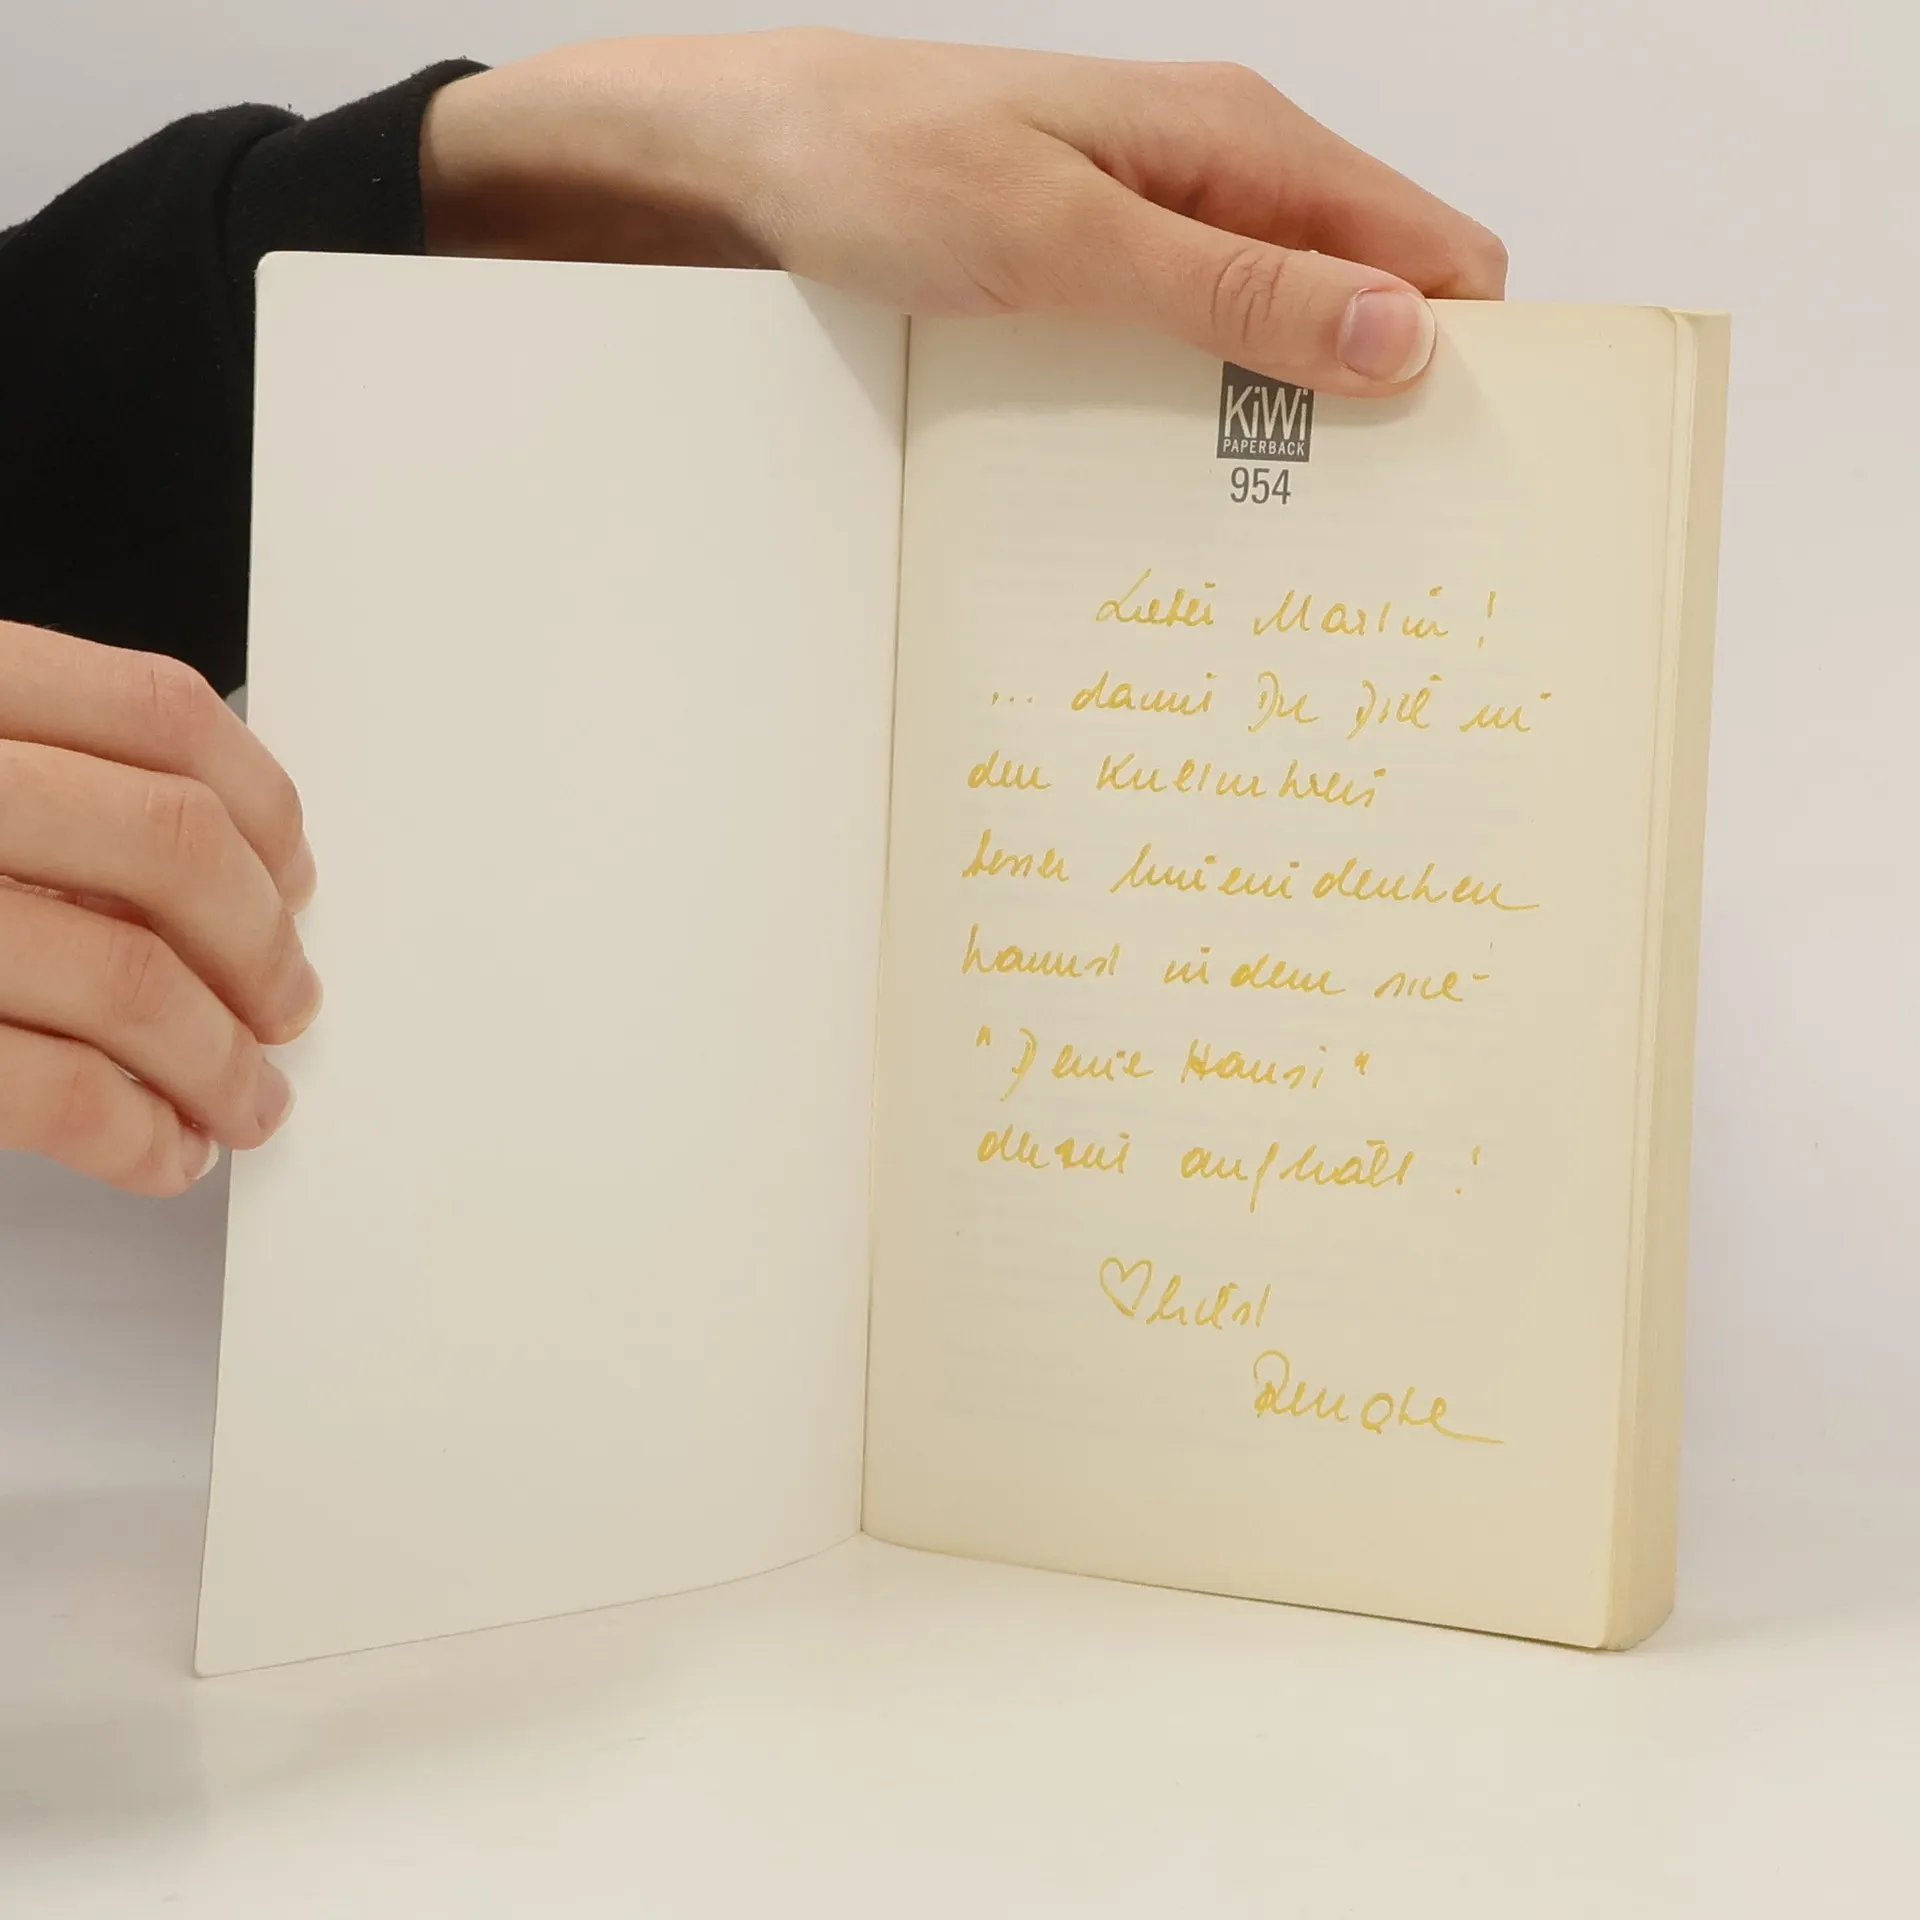 KiWi
PAPERBACK
954
Lieber Martin!
... damit Du Dich in
den Kulturkreis
besser hineindenken
kannst in dem sich
"Deine Hansi"
derzeit aufhält!
♡lichst
Renate